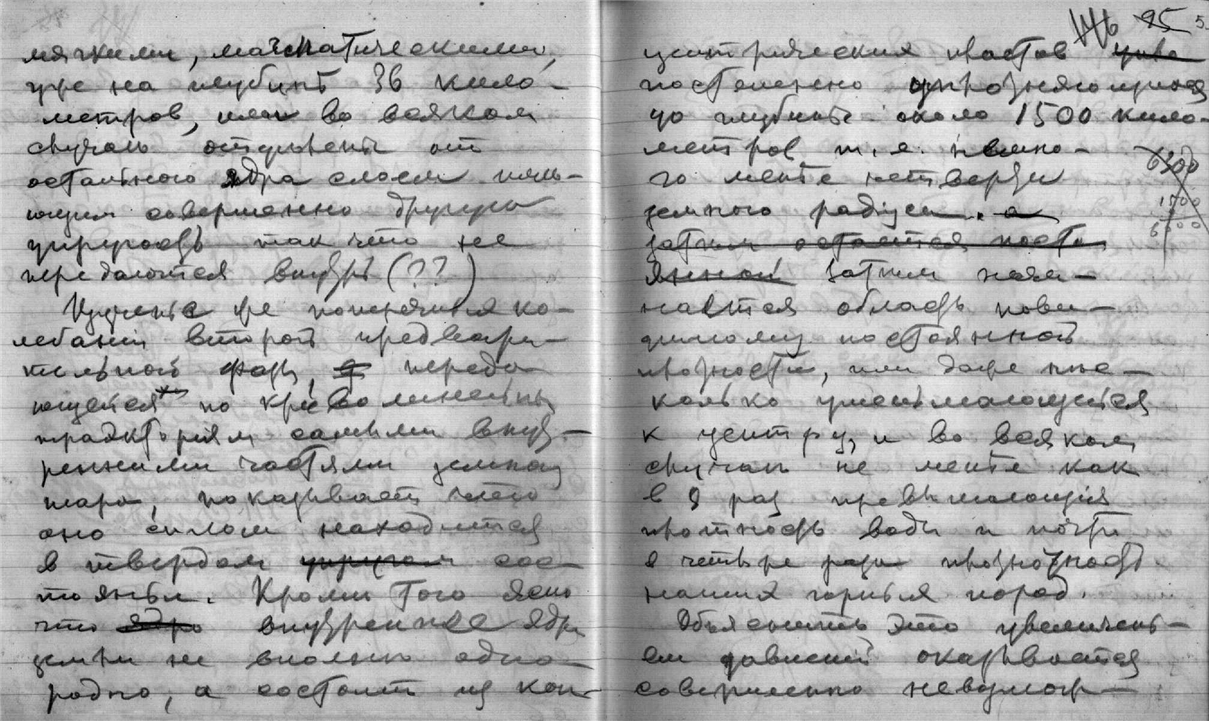 мягкими, магматическими,
уже на глубинѣ 36 кило-
метров, или во всяком
случаѣ отдѣлены от
остального ядра слоем имѣ-
ющим совершенно другую
упругость так что не
передаются внутрь (??)
Изучение же поперечных ко-
лебаній второй предвари-
тельной фазы, переда-
ющейся по криволинейным
траэкторіям самыми внут-
ренними частями земного
шара, показывает что
оно цѣликом находится
в твердом упругом сос-
тояньи. Кромѣ того ясно
что ядро внутреннее ядро
земли не вполнѣ одно-
родно, а состоит из кон-
146 95 5
центрических пластов
постепенно упрочняющихся
до глубины около 1500 кило-
метров т. е. немно-
го менѣе четверти
земного радіуса. а
затѣм остается посто
янной затѣм начи-
нается область пови-
димому постоянной
прочности, или даже нѣс-
колько уменьшающейся
к центру, и во всяком
случаѣ не менѣе как
в 9 раз превышающая
плотность воды и почти
в четыре раза прочность
наших горных пород.
Объяснить это увеличень-
ем давленій оказывается
совершенно невозмож-
6300
1500